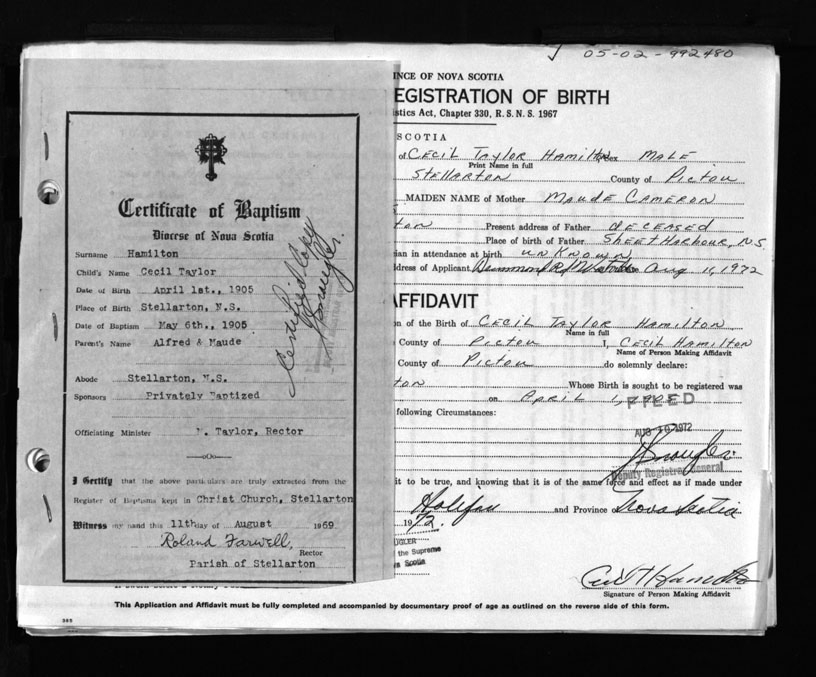 05-02-992480
INCE OF NOVA SCOTIA
EGISTRATION OF BIRTH
istics Act, Chapter 330, R.S.N.S. 1967
SCOTIA
of CECIL TAYLOR HAMILTON Sex MALE
Print Name in full
STELLARTON County of PICTOU
MAIDEN NAME of Mother MAUDE CAMERON
TON Present address of Father DECEASED
Place of birth of Father SHEET HARBOUR, N.S.
ian in attendance at birth UNKNOWN
ddress of Applicant Aug 11, 1972
AFFIDAVIT
on of the Birth of CECIL TAYLOR HAMILTON
Name in full
County of PICTOU I, CECIL HAMILTON
Name of Person Making Affidavit
County of PICTOU do solemnly declare:
TON Whose Birth is sought to be registered was
on APRIL 1, 1905
FILED
following Circumstances:
AUG 10 1972
Deputy Registrar General
it to be true, and knowing that it is of the same force and effect as if made under
Halifax and Province of Nova Scotia
1972.
UGLER
the Supreme
va Scotia
Signature of Person Making Affidavit
This Application and Affidavit must be fully completed and accompanied by documentary proof of age as outlined on the reverse side of this form.
Certificate of Baptism
Diocese of Nova Scotia
Surname Hamilton
Child's Name Cecil Taylor
Date of Birth April 1st., 1905
Place of Birth Stellarton, N.S.
Date of Baptism May 6th., 1905
Parent's Name Alfred & Maude
Abode Stellarton, N.S.
Sponsors Privately Baptized
Officiating Minister W. Taylor, Rector
I Certify that the above particulars are truly extracted from the
Register of Baptisms kept in Christ Church, Stellarton
Witness my hand this 11th day of August 1969
Roland Farwell,
Rector
Parish of Stellarton
Certified Copy